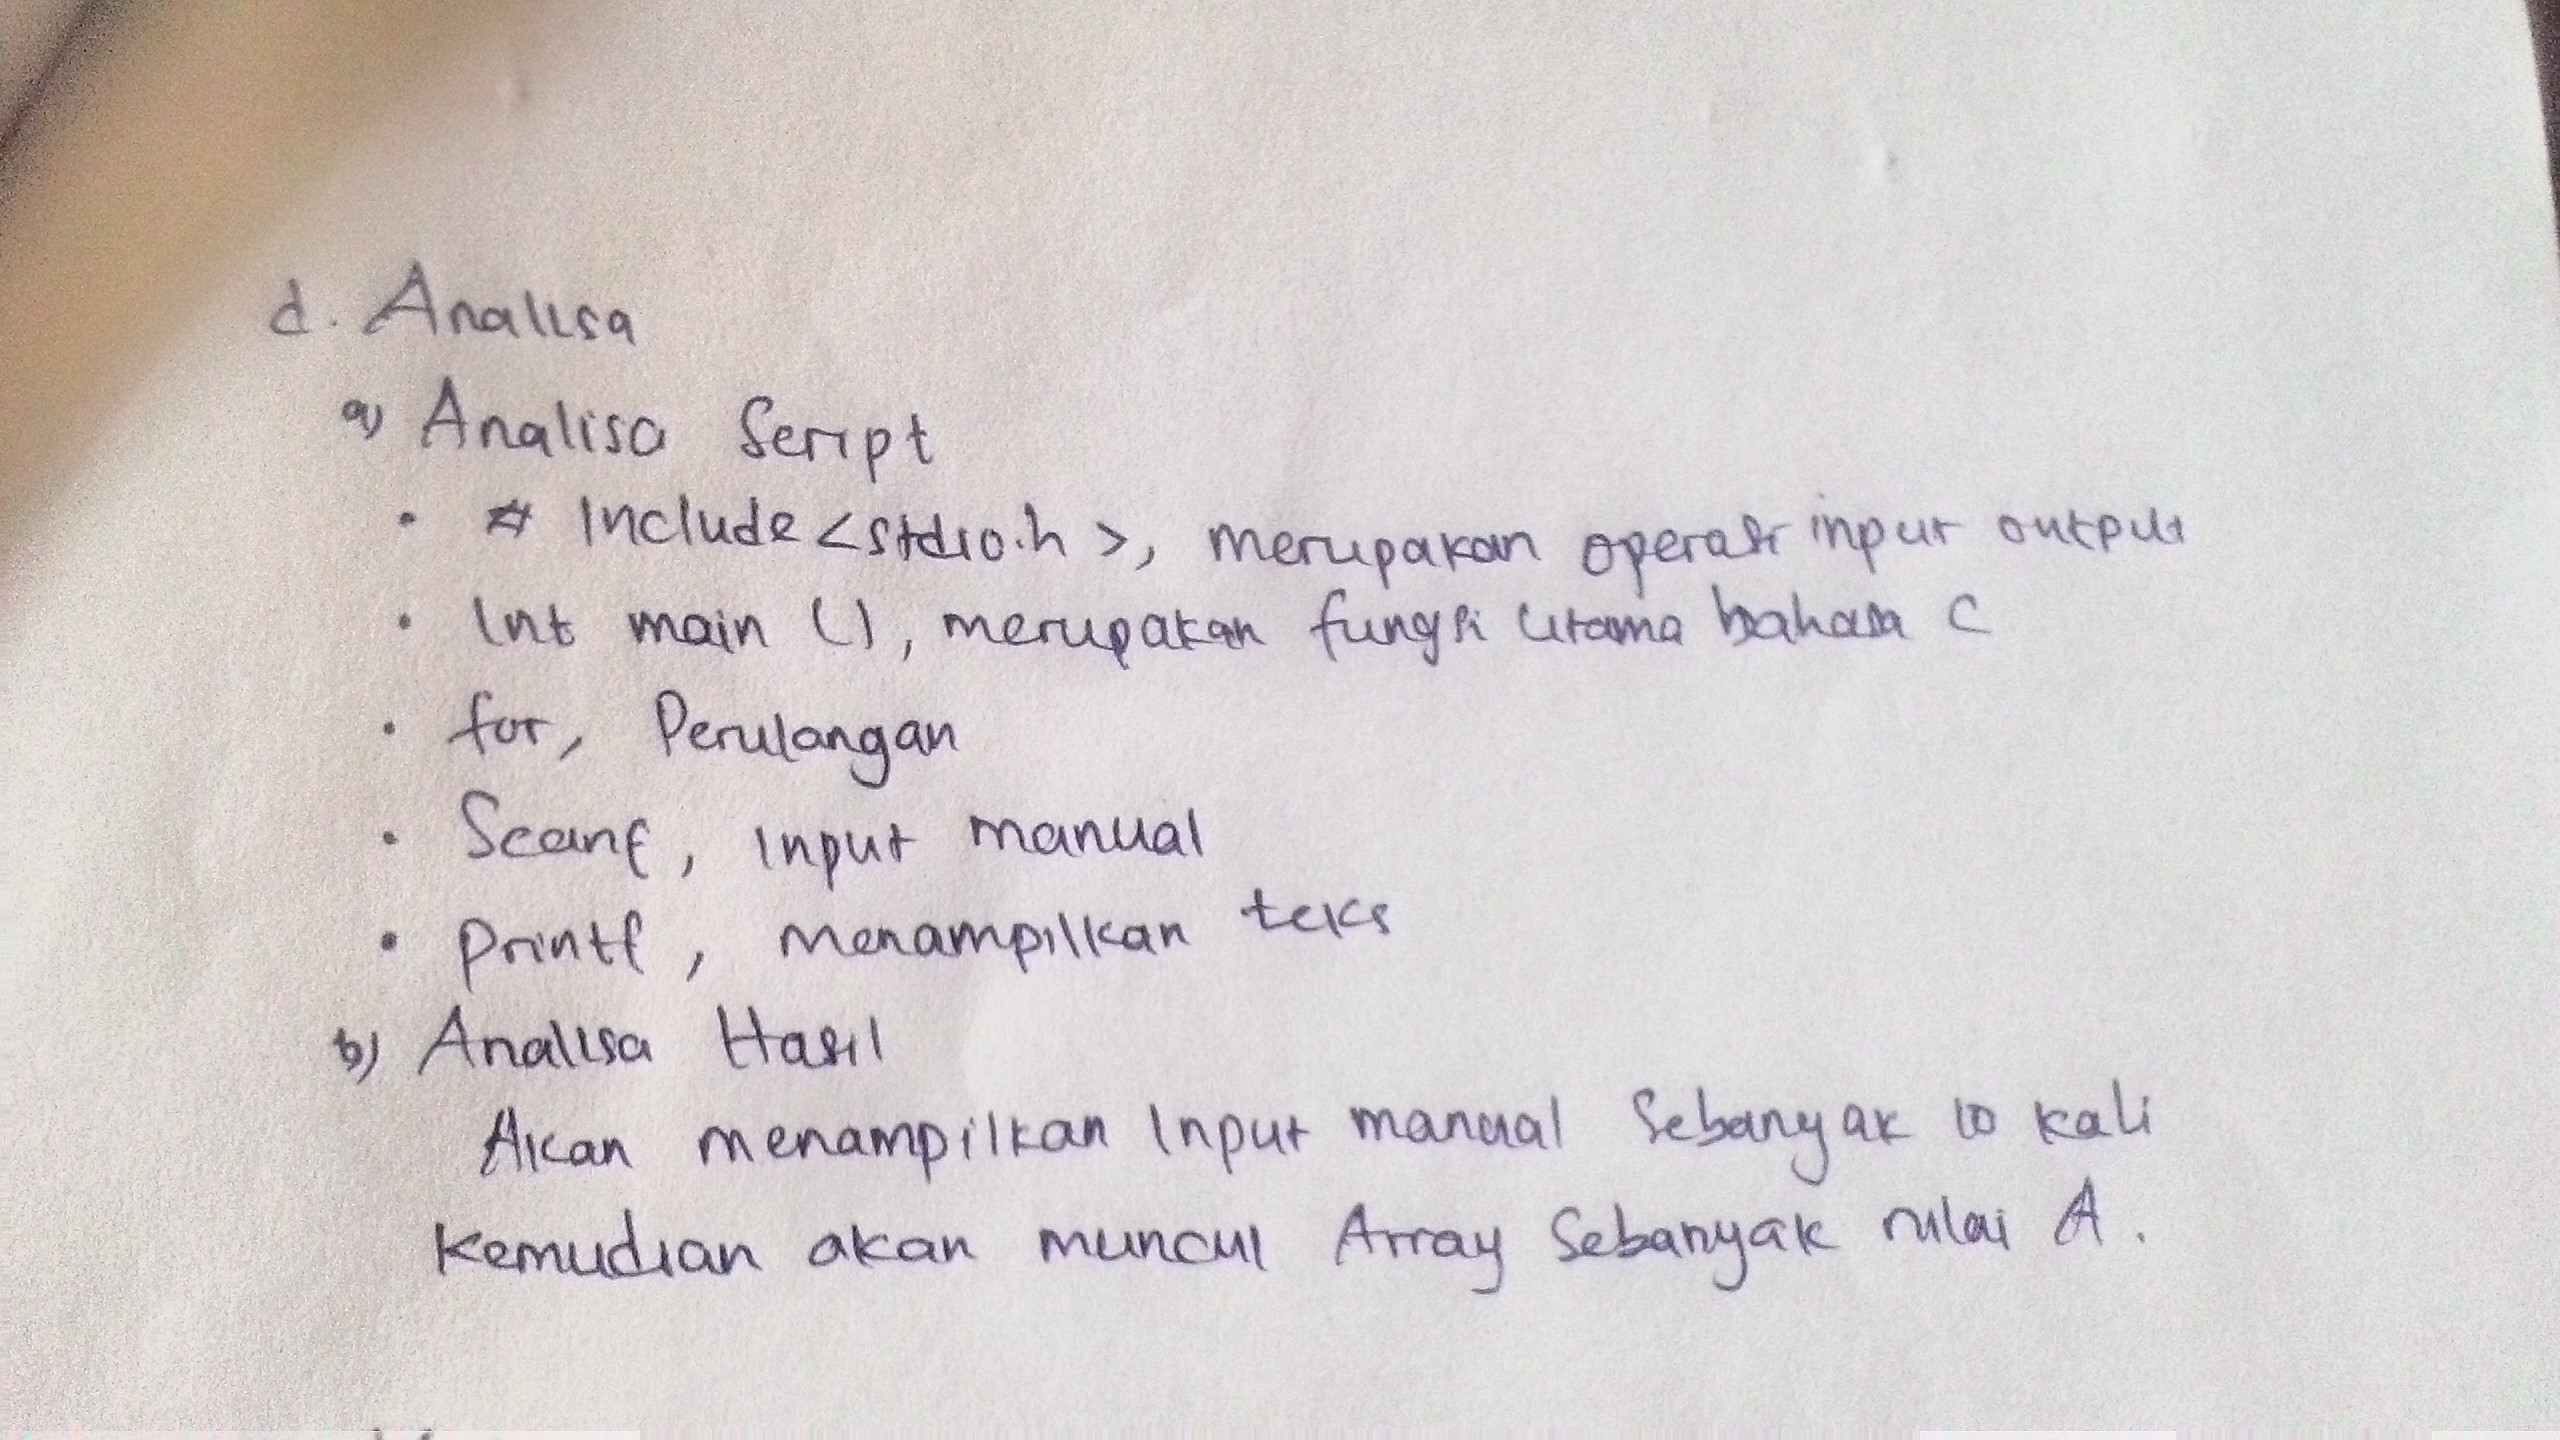 d. Analisa
a) Analisa Script
• # Include <stdio.h>, merupakan operasi input output
• Int main (), merupakan fungsi utama bahasa C
• for, Perulangan
• Scanf, Input manual
• Printf, menampilkan teks
b) Analisa Hasil
Akan menampilkan Input manual Sebanyak 10 kali
Kemudian akan muncul Array Sebanyak nilai A.